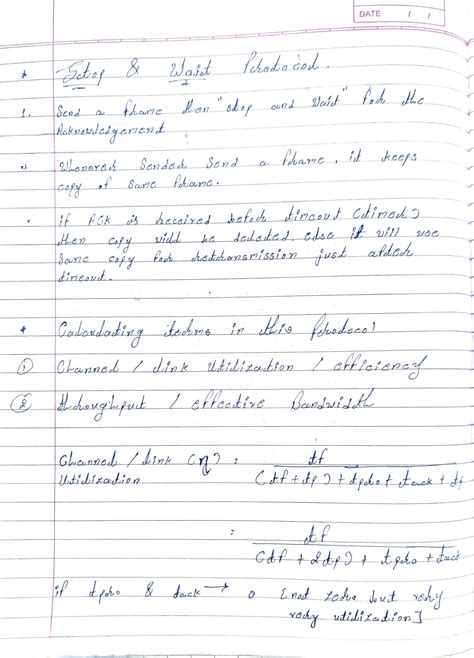 DATE / /
* Stop & Wait Protocol.
1. Send a frame then "stop and Wait" for the
Acknowledgement
Whenever Sender Send a frame, it keeps
copy of same frame.
. if ACK is received before timeout (timer)
then copy will be deleted, else it will use
same copy for retransmission just after
timeout.
* Calculating items in this Protocol
① Channel / link Utilization / efficiency
② throughput / effective Bandwidth
Channel / link (η) : tf
Utilization (tf + tp) + tpro + tack + tp
: tf
(tf + 2tp) + tpro + tack
if tpro & tack → 0 [not zero but very
very utilization]